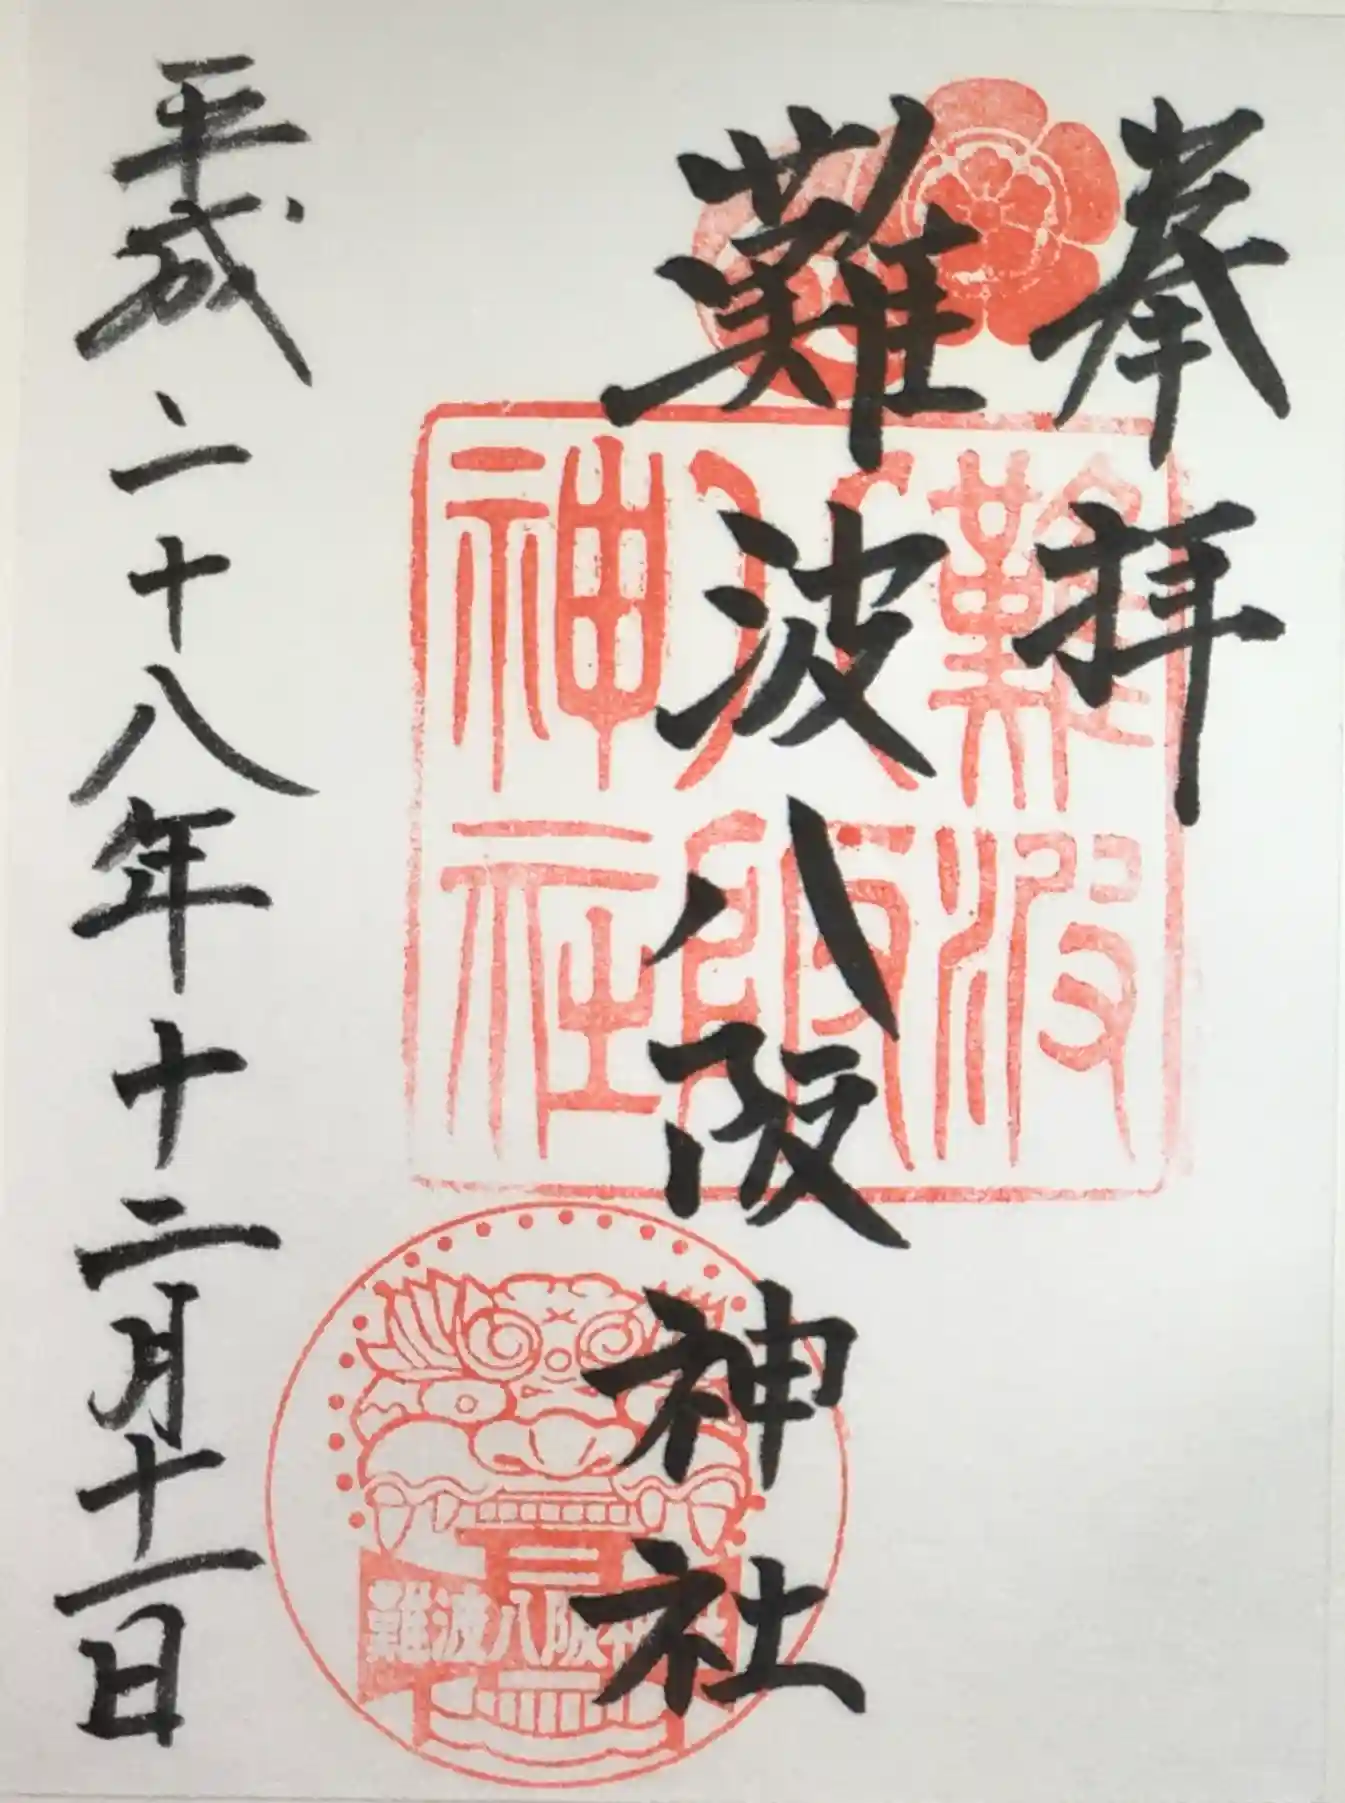 奉拝
難波八阪神社
平成二十八年十二月十一日
難波
八阪
神社
難波八阪神社